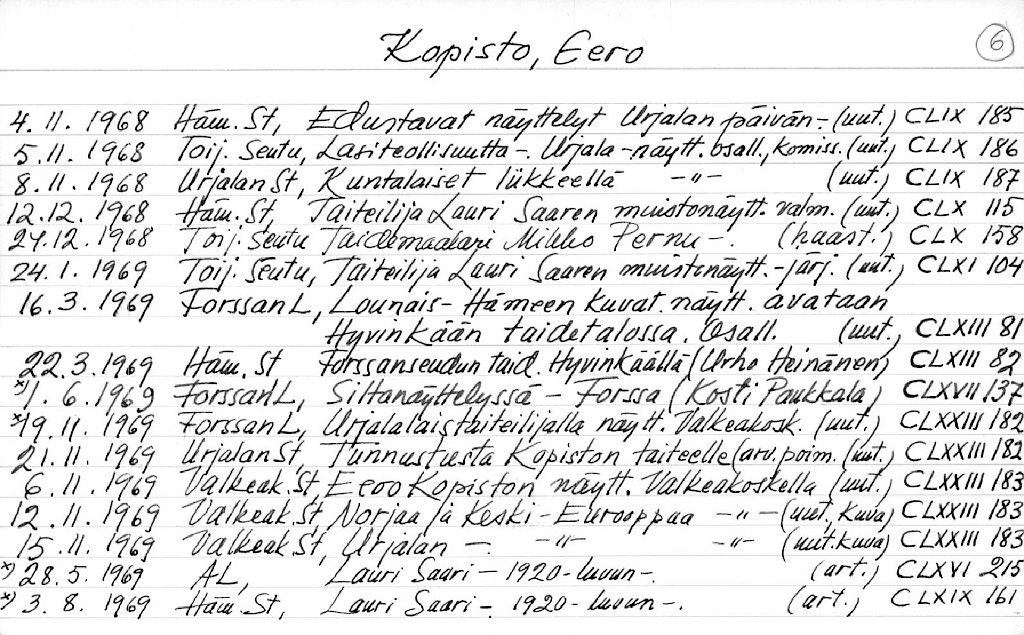 Kopisto, Eero
6
4. 11. 1968 Häm. St, Edustavat näyttelyt Urjalan päivän -. (uut.) CLIX 185
5. 11. 1968 Toij. Seutu, Lasiteollisuutta -. Urjala - näytt. osall., komiss. (uut.) CLIX 186
8. 11. 1968 Urjalan St, Kuntalaiset lükkeellä -"- (uut.) CLIX 187
12.12. 1968 Häm. St, Taiteilija Lauri Saaren muistonäytt. valm. (uut.) CLX 115
24.12. 1968 Toij. Seutu Taidemaalari Mikko Pernu -. (haast.) CLX 158
24. 1. 1969 Toij. Seutu, Taiteilija Lauri Saaren muistonäytt. - järj. (uut.) CLXI 104
16. 3. 1969 Forssan L, Lounais - Hämeen kuvat. näytt. avataan
Hyvinkään taidetalossa. Osall. (uut.) CLXIII 81
22. 3. 1969 Häm. St Forssanseudun taid. Hyvinkäällä (Urho Heinänen) CLXIII 82
x) 1. 6. 1969 Forssan L, Siltanäyttelyssä - Forssa (Kosti Paukkala) CLXVII 137
x) 19. 11. 1969 Forssan L, Urjalalaistaiteilijalla näytt. Valkeakosk. (uut.) CLXXIII 182
21. 11. 1969 Urjalan St, Tunnustusta Kopiston taiteelle (arv. poim. (uut.) CLXXIII 182
6. 11. 1969 Valkeak. St, Eero Kopiston näytt. Valkeakoskella (uut.) CLXXIII 183
12. 11. 1969 Valkeak. St, Norjaa ja Keski - Eurooppaa -"- (uut., kuva) CLXXIII 183
15. 11. 1969 Valkeak St, Urjalan -. -"- -"- (uut. kuva) CLXXIII 183
x) 28. 5. 1969 AL, Lauri Saari - 1920 - luvun -. (art.) CLXVI 215
x) 3. 8. 1969 Häm. St, Lauri Saari - 1920 - luvun -. (art.) CLXIX 161